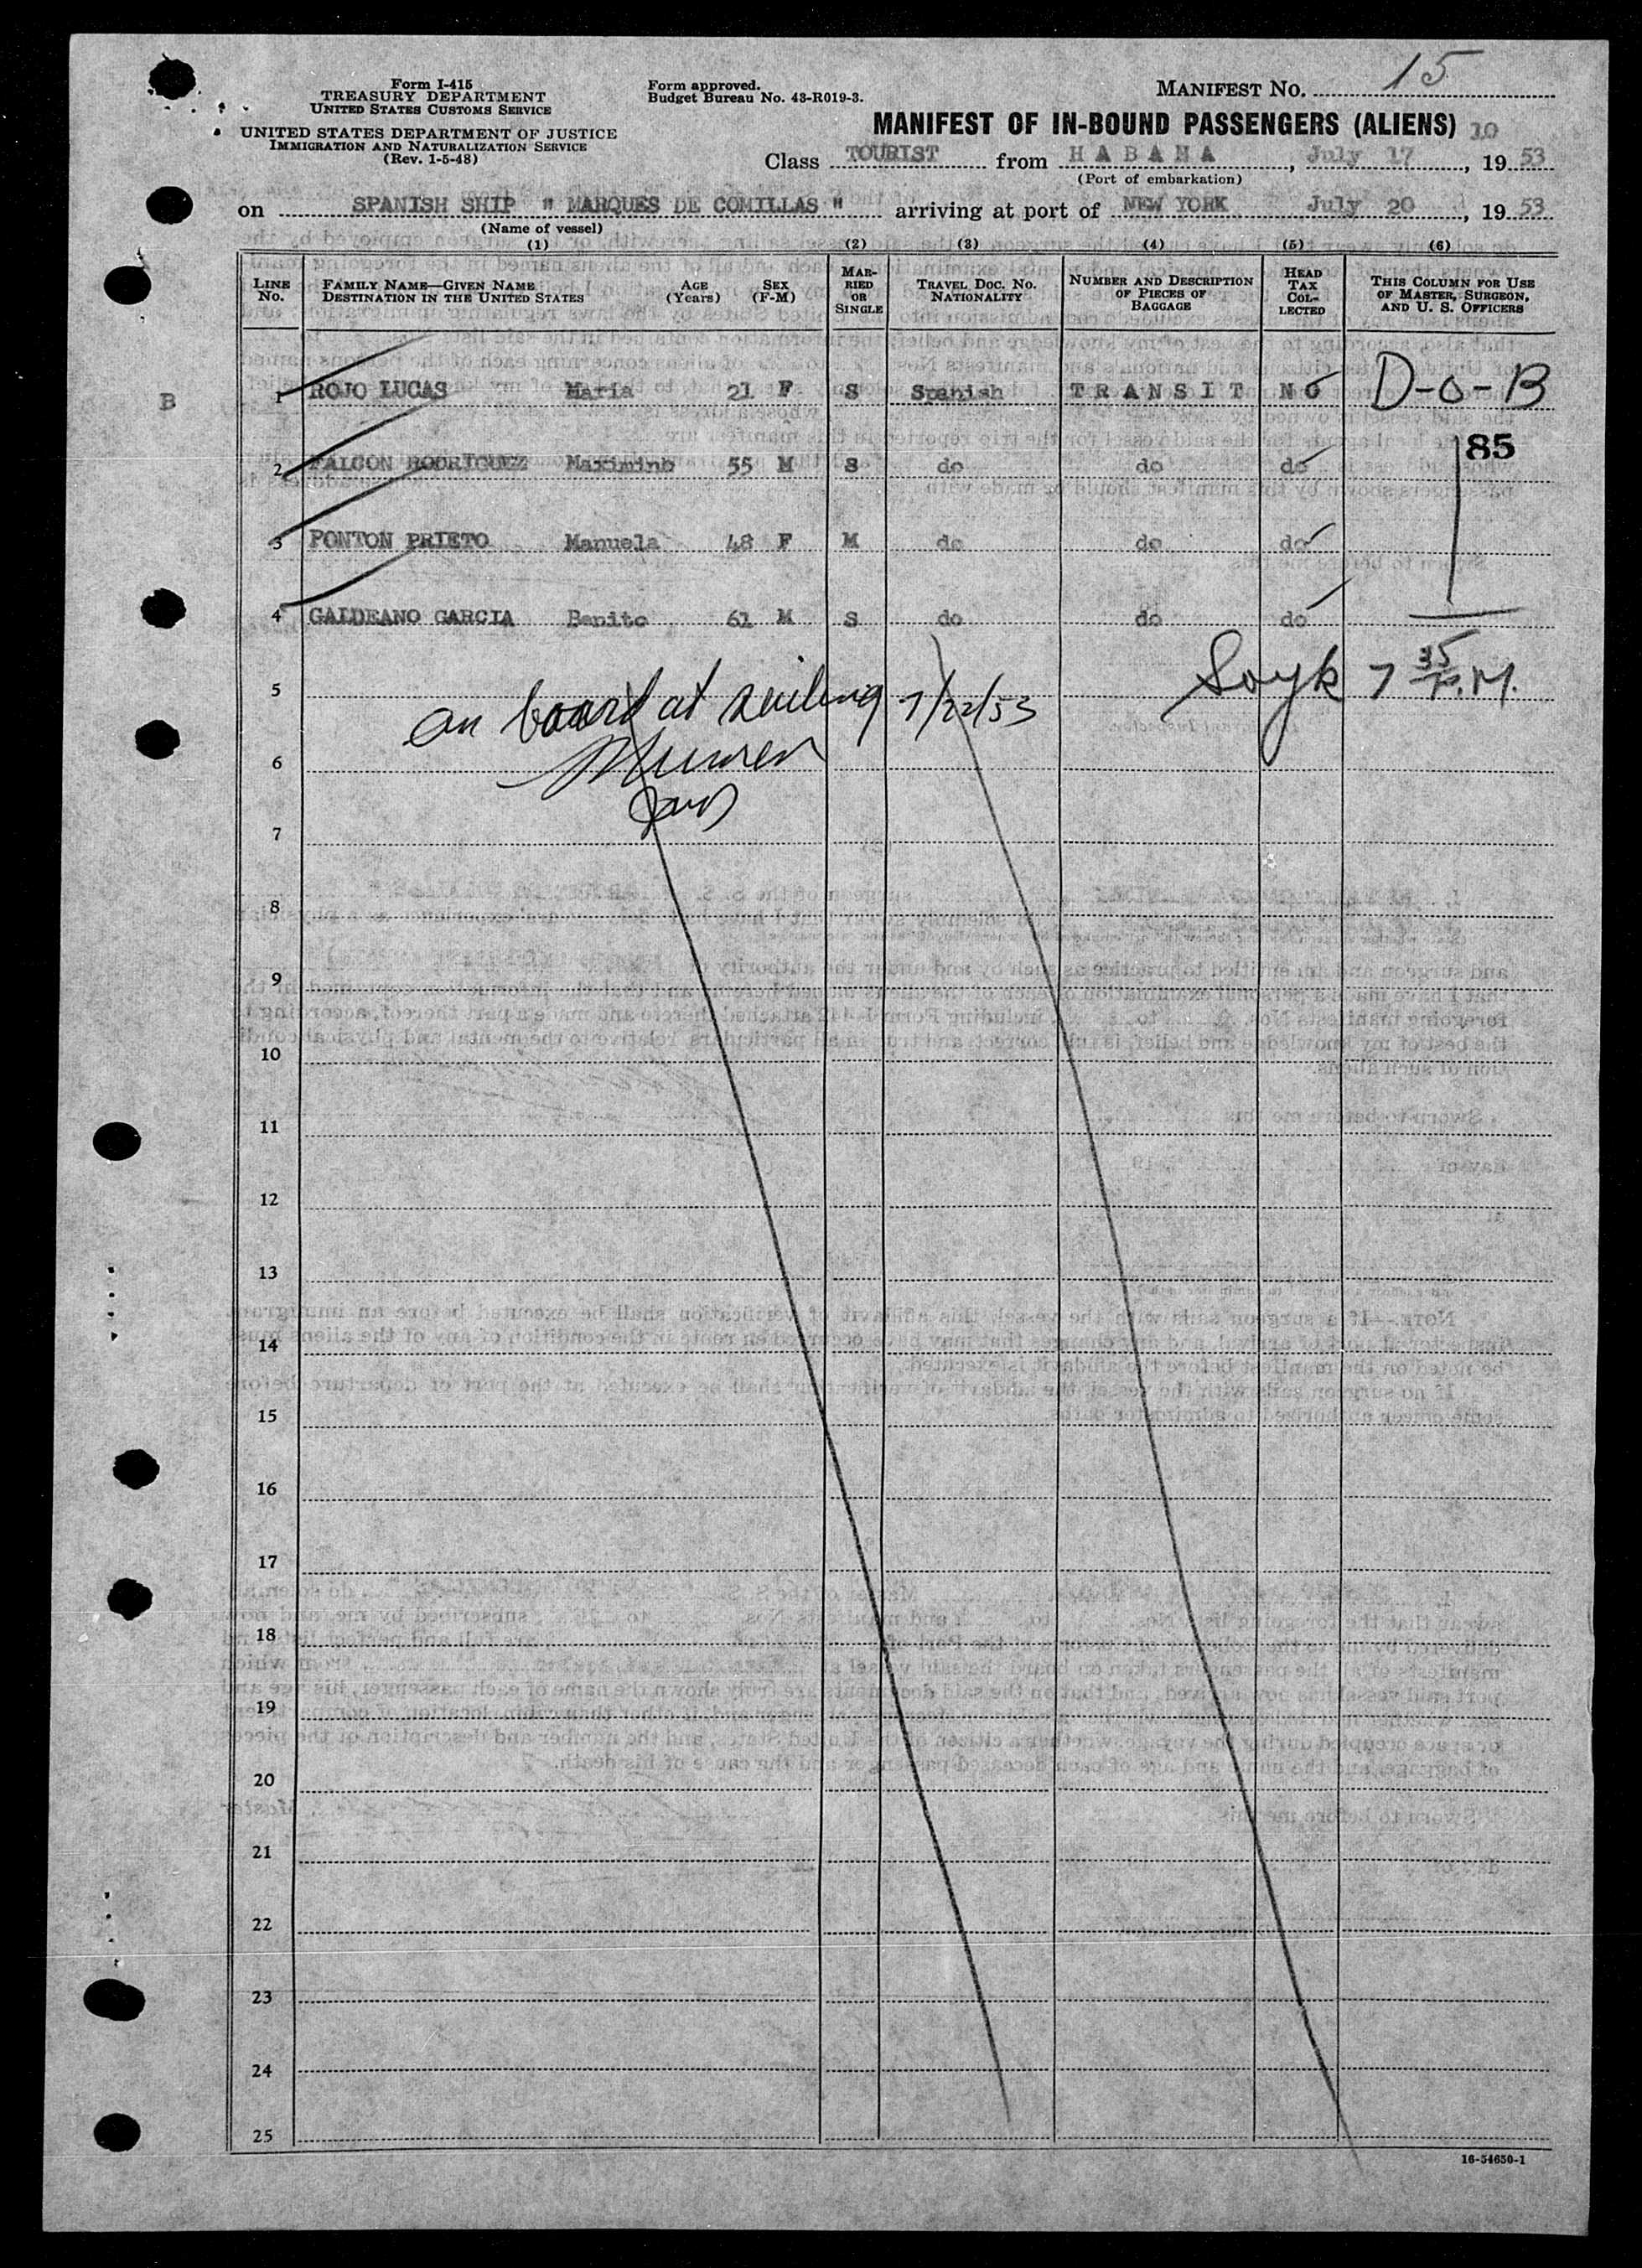 Form I-415
TREASURY DEPARTMENT
UNITED STATES CUSTOMS SERVICE
UNITED STATES DEPARTMENT OF JUSTICE
IMMIGRATION AND NATURALIZATION SERVICE
(Rev. 1-5-48)
Form approved.
Budget Bureau No. 43-R019-3.
MANIFEST NO. 15
MANIFEST OF IN-BOUND PASSENGERS (ALIENS) 10
Class TOURIST from HABANA, July 17, 19 53
(Port of embarkation)
on SPANISH SHIP " MARQUES DE COMILLAS " arriving at port of NEW YORK July 20, 19 53
(Name of vessel)
(1) (2) (3) (4) (5) (6)
LINE NO. FAMILY NAME—GIVEN NAME DESTINATION IN THE UNITED STATES AGE (Years) SEX (F-M) MARRIED OR SINGLE TRAVEL DOC. NO. NATIONALITY NUMBER AND DESCRIPTION OF PIECES OF BAGGAGE HEAD TAX COLLECTED THIS COLUMN FOR USE OF MASTER, SURGEON, AND U. S. OFFICERS
B 1 ROJO LUCAS Maria 21 F S Spanish TRANSIT NO D-O-B
85
2 FALCON RODRIGUEZ Maximino 55 M S do do do
3 PONTON PRIETO Manuela 48 F M do do do
4 GALDEANO GARCIA Benito 61 M S do do do
5 on board at sailing 7/22/53 7 35 P.M.
6
7
8
9
10
11
12
13
14
15
16
17
18
19
20
21
22
23
24
25
16-54650-1